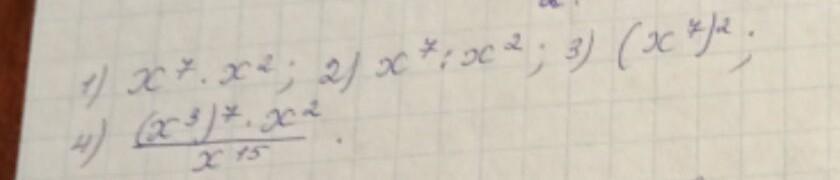 1) x⁷ · x²; 2) x⁷ : x²; 3) (x⁷)²;
4) (x³)⁷ · x² / x¹⁵.